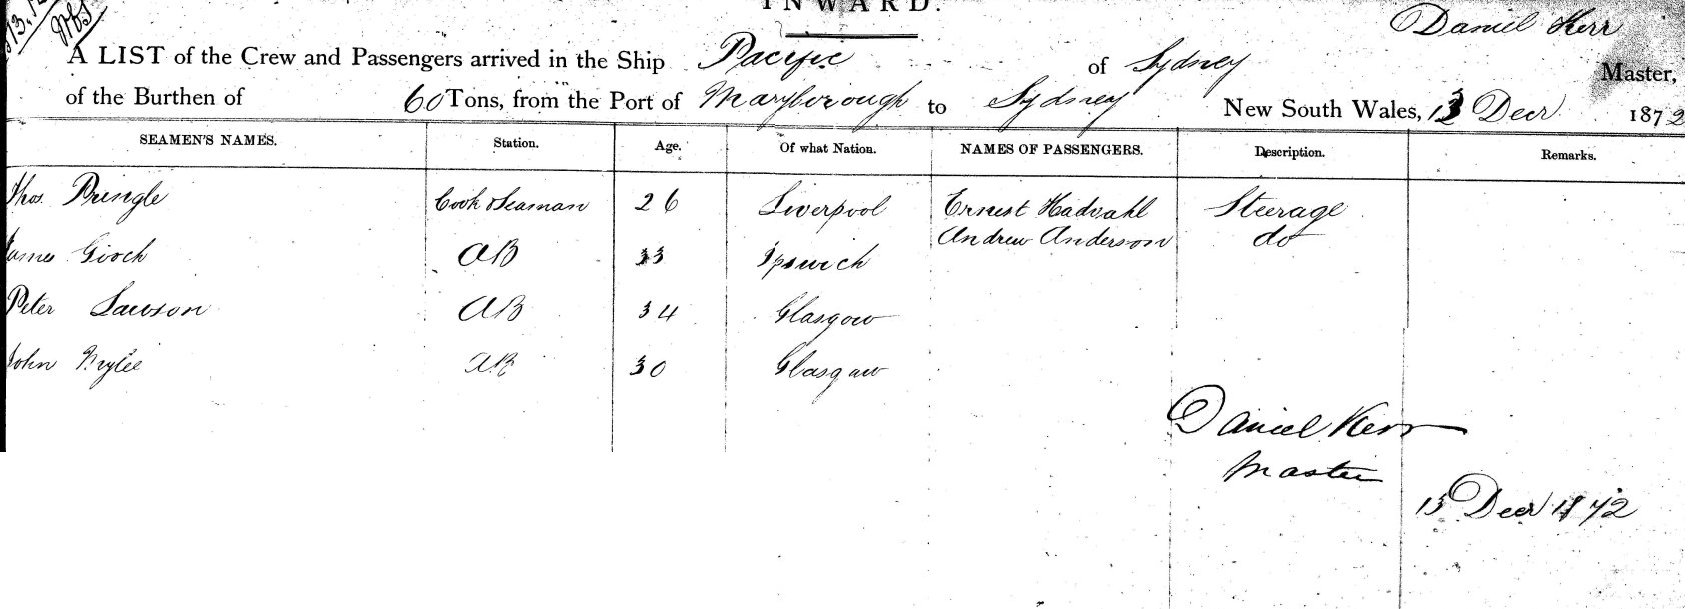 INWARD.
Daniel Kerr
A LIST of the Crew and Passengers arrived in the Ship Pacific of Sydney Master,
of the Burthen of 60 Tons, from the Port of Maryborough to Sydney New South Wales, 13 Decr 1872
SEAMEN'S NAMES. Station. Age. Of what Nation. NAMES OF PASSENGERS. Description. Remarks.
Thos. Pringle Cook & Seaman 26 Liverpool Ernest Hadvahl Steerage
Andrew Anderson do
James Gooch AB 33 Ipswich
Peter Lawson AB 34 Glasgow
John AB 30 Glasgow
Daniel Kerr
Master
13 Decr 1872